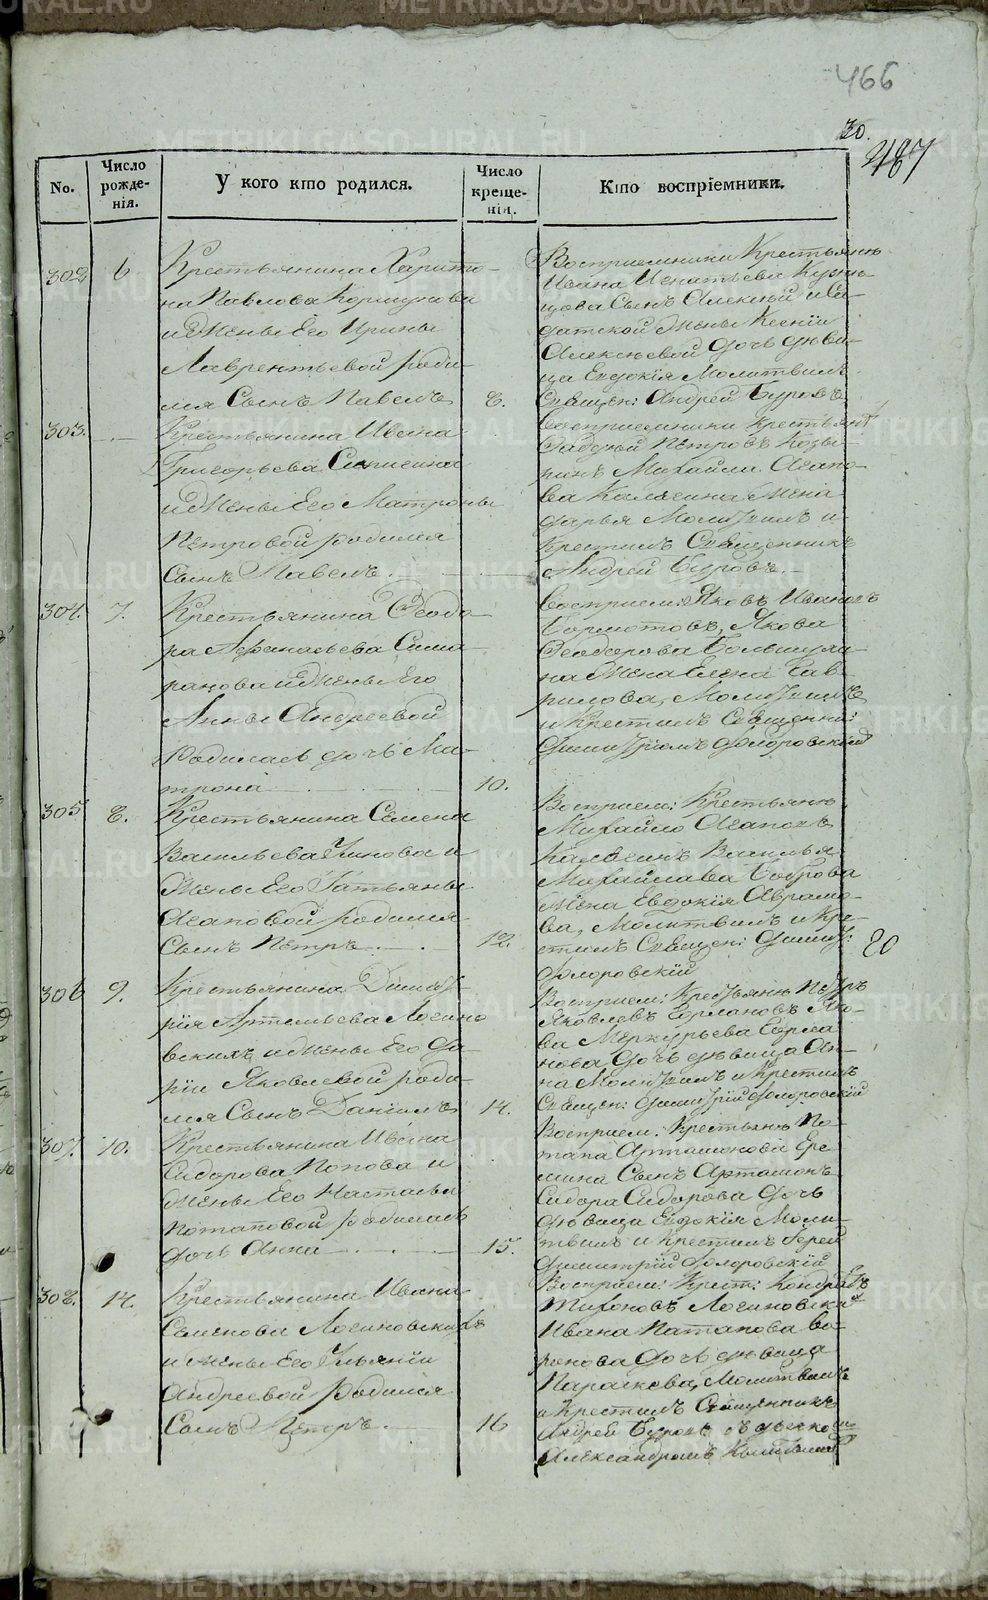 466
30.
487
No.
Число рожде-нія.
У кого кто родился.
Число креще-нія.
Кто воспріемники.
302 6
Крестьянина Харито-
на Павлова Коршунова
и Жены Его Ирины
Лаврентьевой роди-
лся Сынъ Павелъ
8.
Восприемники Крестьянъ
Ивана Игнатьева Кузне-
цова Сынъ Алексѣй и Сол-
датской Жены Ксеніи
Алексѣевой дочь дѣви-
ца Евдокія Молитвилъ
Священ: Андрей Буровъ
303.
Крестьянина Ивана
Григорьева
и Жены Его Матроны
Петровой родился
Сынъ Павелъ
Восприемники Крестьян:
Петровъ Козы-
ринъ Михайлы Агапо-
ва Калягина Жена
Дарья Молитвилъ и
Крестилъ Священникъ
Андрей Буровъ.
304. 7.
Крестьянина Ѳеодо-
ра Афанасьева
и Жены Его
Анны Андреевой
Родилась дочь Ма-
трона
10.
Восприемн: Яковъ Ивановъ
Бормотовъ, Якова
Ѳеодорова
на Жена Елена Гав-
рилова, Молитвилъ
и Крестилъ Священни:
Димитріемъ Флоровскій
305 8.
Крестьянина Семена
Васильева и
Жены Его Татьяны
Агаповой родился
Сынъ Петръ
12.
Восприем: Крестьянъ
Михайло Агаповъ
Калягинъ Василья
Михайлова Боброва
Жена Евдокія Аврамо-
ва, Молитвилъ и Кре-
стилъ Священ: Димит:
Флоровскій
20
306 9.
Крестьянина Димит-
рія Артемьева Логино-
вскихъ и Жены Его Да-
ріи Яковлевой роди-
лся Сынъ Даніилъ
14.
Восприем: Крестьянъ Петръ
Яковлевъ Ефрановъ Яко-
ва Меркурьева
нова дочь дѣвица Ан-
на Молитвилъ и Крестилъ
Священ: Димитрій Флоровскій
307. 10.
Крестьянина Ивана
Сидорова Попова и
Жены Его Настасьи
Потаповой родилась
дочь Анна
15.
Восприем: Крестьянъ По-
тапа Артамонова Ере-
мина Сынъ Артамонъ
Сидора Сидорова дочь
дѣвица Евдокія Моли-
твилъ и Крестилъ Іерей
Димитрій Флоровскій
308. 14.
Крестьянина Ивана
Семенова Логиновскихъ
и Жены Его Ульяніи
Андреевой родился
Сынъ Петръ
16
Восприем: Крест: Кондратъ
Тихоновъ Логиновских
Ивана Патапова Во-
ронова дочь дѣвица
Параскева, Молитвилъ
и Крестилъ Священникъ
Андрей Буровъ съ дьячкомъ
Александромъ
METRIKI.GASO-URAL.RU